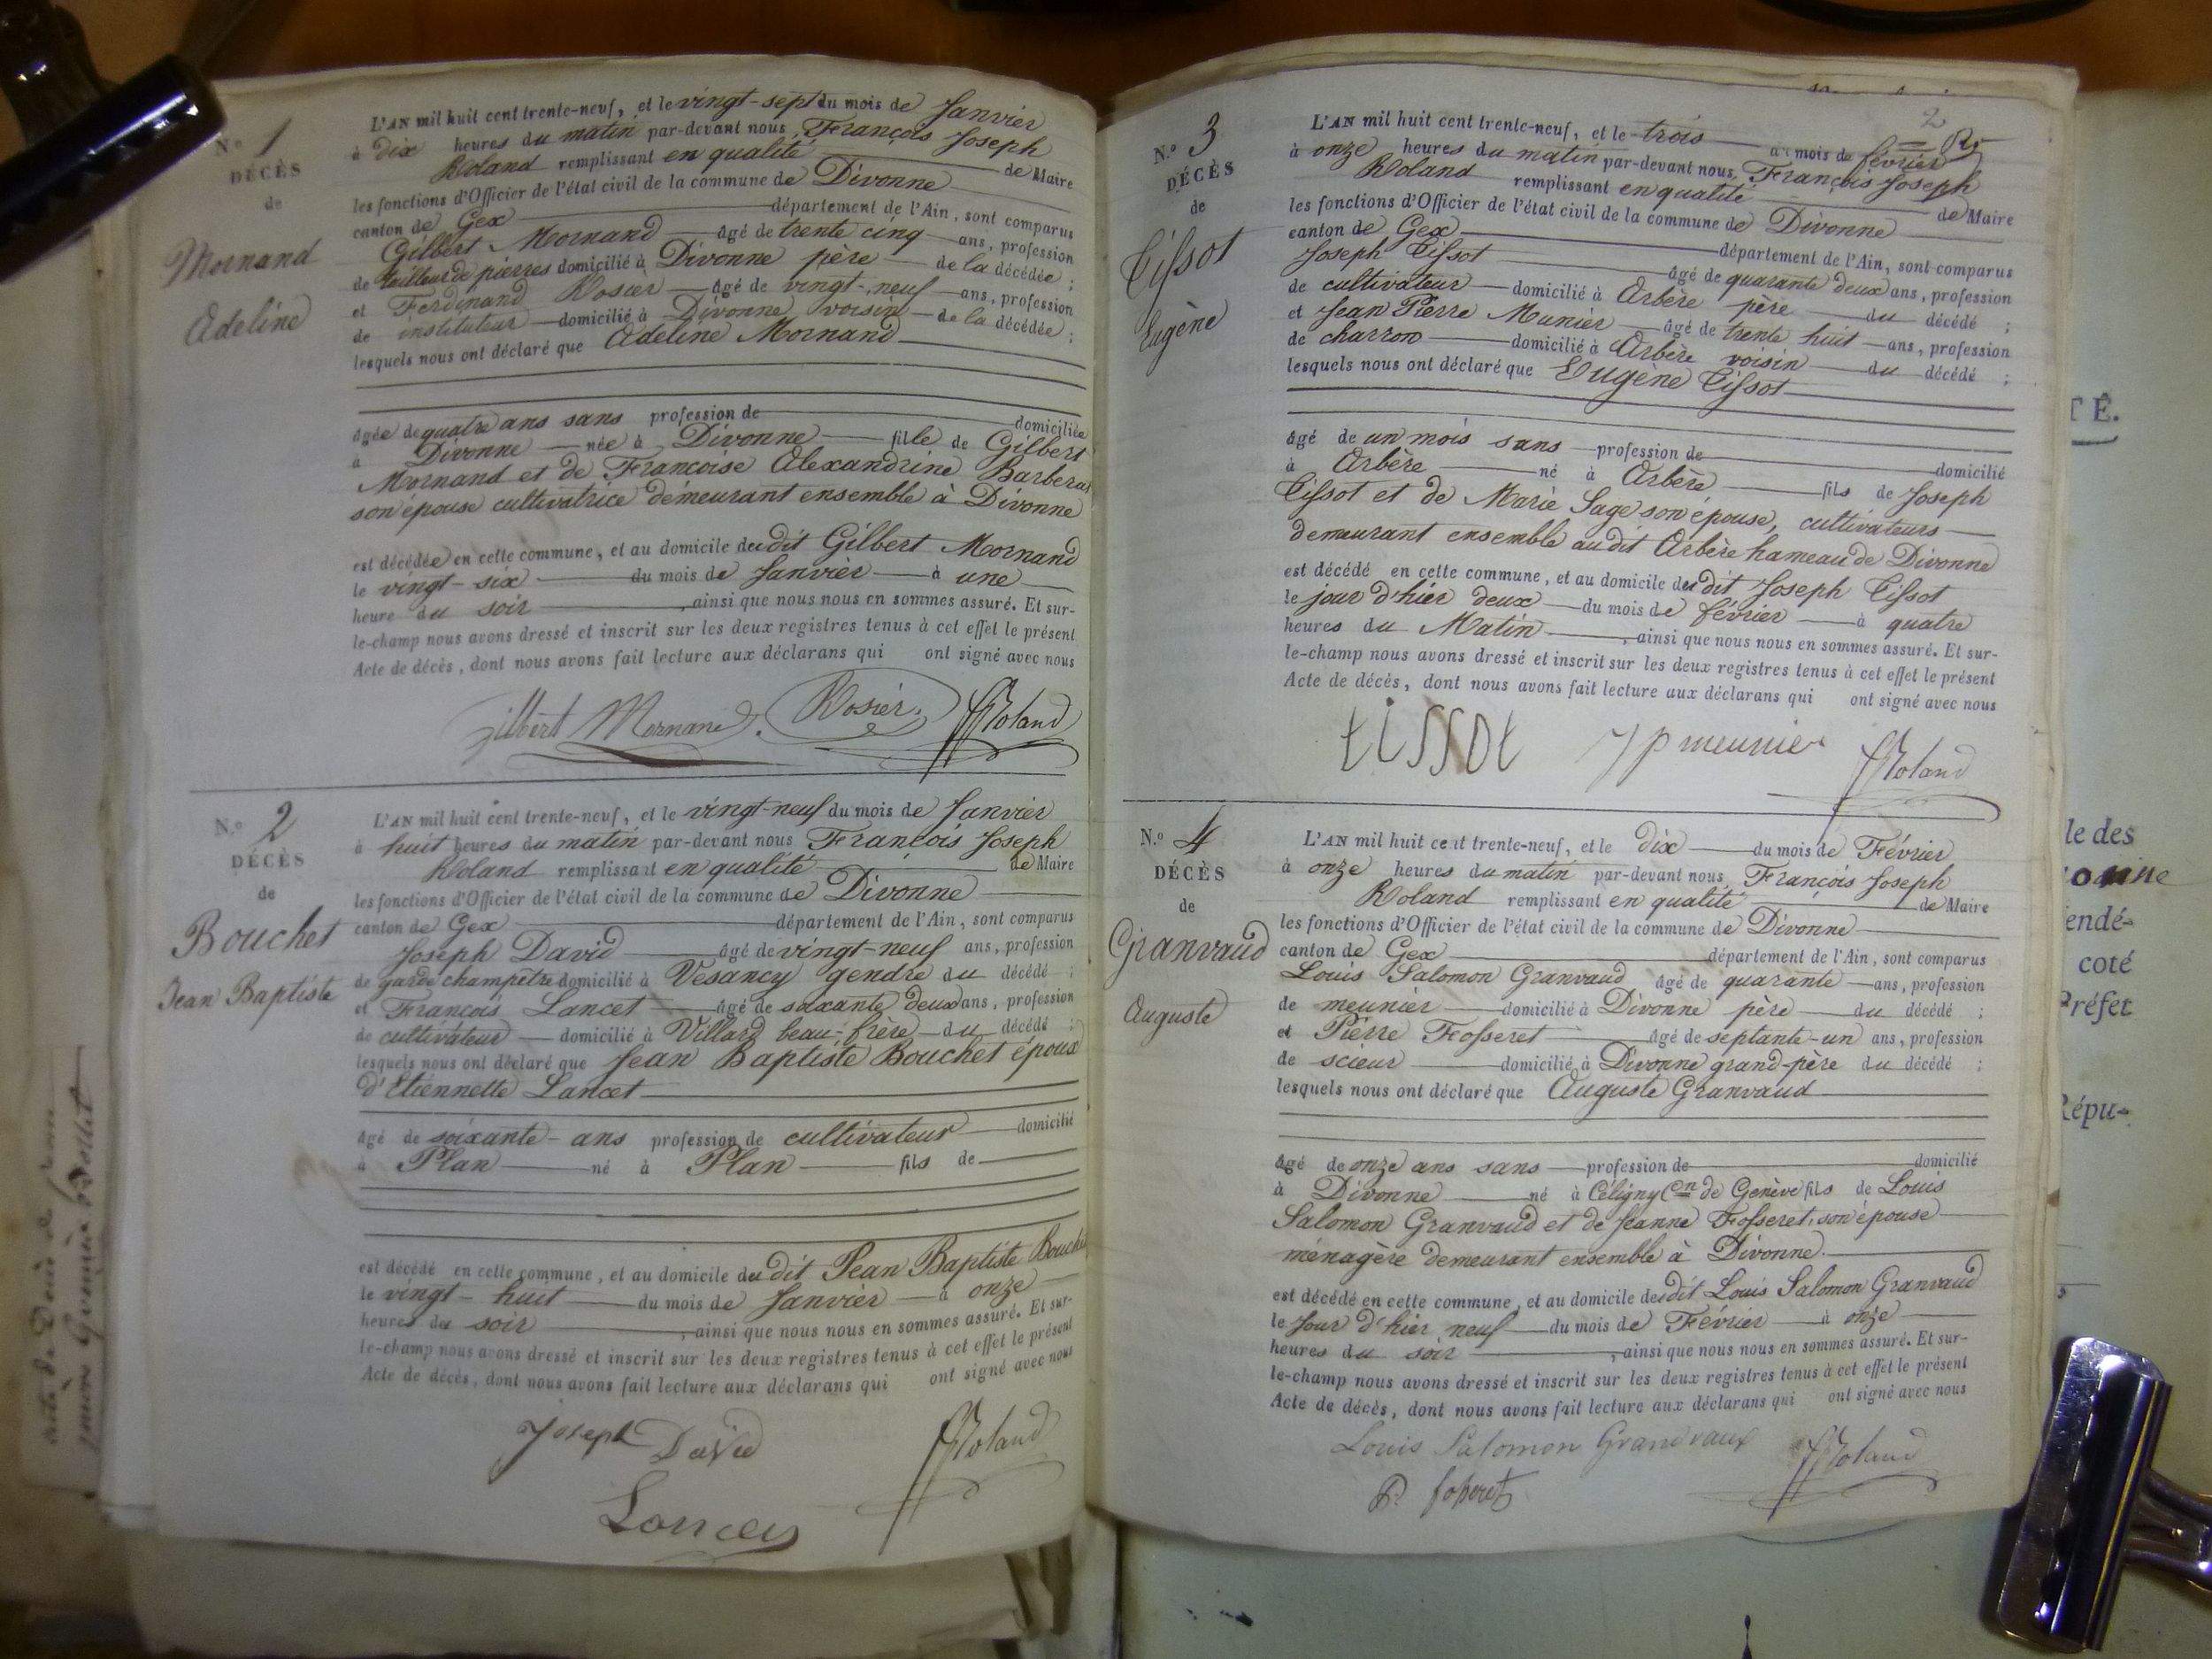 N.o 1
DÉCÈS
de
Mornand
Adeline
L'AN mil huit cent trente-neuf, et le vingt-sept du mois de Janvier
à dix heures du matin par-devant nous François Joseph
Roland remplissant en qualité de Maire
les fonctions d'Officier de l'état civil de la commune de Divonne
canton de Gex département de l'Ain, sont comparus
Gilbert Mornand âgé de trente cinq ans, profession
de tailleur de pierres domicilié à Divonne père de la décédée ;
et Ferdinand Rosier âgé de vingt-neuf ans, profession
de instituteur domicilié à Divonne voisin de la décédée ;
lesquels nous ont déclaré que Adeline Mornand
âgée de quatre ans sans profession de domiciliée
à Divonne née à Divonne fille de Gilbert
Mornand et de Françoise Alexandrine
son épouse cultivatrice demeurant ensemble à Divonne
est décédée en cette commune, et au domicile du dit Gilbert Mornand
le vingt-six du mois de Janvier à une
heure du soir , ainsi que nous nous en sommes assuré. Et sur-
le-champ nous avons dressé et inscrit sur les deux registres tenus à cet effet le présent
Acte de décès, dont nous avons fait lecture aux déclarans qui ont signé avec nous
Gilbert Mornand. Rosier. Roland
N.o 2
DÉCÈS
de
Bouchet
Jean Baptiste
L'AN mil huit cent trente-neuf, et le vingt-neuf du mois de Janvier
à huit heures du matin par-devant nous François Joseph
Roland remplissant en qualité de Maire
les fonctions d'Officier de l'état civil de la commune de Divonne
canton de Gex département de l'Ain, sont comparus
Joseph David âgé de vingt-neuf ans, profession
de garde champêtre domicilié à Vesancy gendre du décédé ;
et François Lancet âgé de soixante deux ans, profession
de cultivateur domicilié à Villard beau-frère du décédé ;
lesquels nous ont déclaré que Jean Baptiste Bouchet époux
d'Etiennette Lancet
âgé de soixante ans profession de cultivateur domicilié
à Plan né à Plan fils de
est décédé en cette commune, et au domicile du dit Jean Baptiste Bouchet
le vingt-huit du mois de Janvier à onze
heures du soir , ainsi que nous nous en sommes assuré. Et sur-
le-champ nous avons dressé et inscrit sur les deux registres tenus à cet effet le présent
Acte de décès, dont nous avons fait lecture aux déclarans qui ont signé avec nous
Joseph David Roland
2
N.o 3
DÉCÈS
de
Tissot
Eugène
L'AN mil huit cent trente-neuf, et le trois du mois de février
à onze heures du matin par-devant nous François Joseph
Roland remplissant en qualité de Maire
les fonctions d'Officier de l'état civil de la commune de Divonne
canton de Gex département de l'Ain, sont comparus
Joseph Tissot âgé de quarante deux ans, profession
de cultivateur domicilié à Arbère père du décédé ;
et Jean Pierre Munier âgé de trente huit ans, profession
de charron domicilié à Arbère voisin du décédé ;
lesquels nous ont déclaré que Eugène Tissot
âgé de un mois sans profession de domicilié
à Arbère né à Arbère fils de Joseph
Tissot et de Marie Sage son épouse, cultivateurs
demeurant ensemble au dit Arbère hameau de Divonne
est décédé en cette commune, et au domicile du dit Joseph Tissot
le jour d'hier deux du mois de février à quatre
heures du Matin , ainsi que nous nous en sommes assuré. Et sur-
le-champ nous avons dressé et inscrit sur les deux registres tenus à cet effet le présent
Acte de décès, dont nous avons fait lecture aux déclarans qui ont signé avec nous
tissot jp meunier Roland
N.o 4
DÉCÈS
de
Granvaud
Auguste
L'AN mil huit cent trente-neuf, et le dix du mois de Février
à onze heures du matin par-devant nous François Joseph
Roland remplissant en qualité de Maire
les fonctions d'Officier de l'état civil de la commune de Divonne
canton de Gex département de l'Ain, sont comparus
Louis Salomon Granvaud âgé de quarante ans, profession
de meunier domicilié à Divonne père du décédé ;
et Pierre Fosseret âgé de septante-un ans, profession
de scieur domicilié à Divonne grand-père du décédé ;
lesquels nous ont déclaré que Auguste Granvaud
âgé de onze ans sans profession de domicilié
à Divonne né à Céligny Con de Genève fils de Louis
Salomon Granvaud et de Jeanne Fosseret, son épouse
ménagère demeurant ensemble à Divonne.
est décédé en cette commune, et au domicile du dit Louis Salomon Granvaud
le Jour d'hier neuf du mois de Février à onze
heures du soir , ainsi que nous nous en sommes assuré. Et sur-
le-champ nous avons dressé et inscrit sur les deux registres tenus à cet effet le présent
Acte de décès, dont nous avons fait lecture aux déclarans qui ont signé avec nous
Louis Salomon Grandvaux Roland
P. fosseret
TÉ.
le des
endé-
coté
Préfet
Répu-